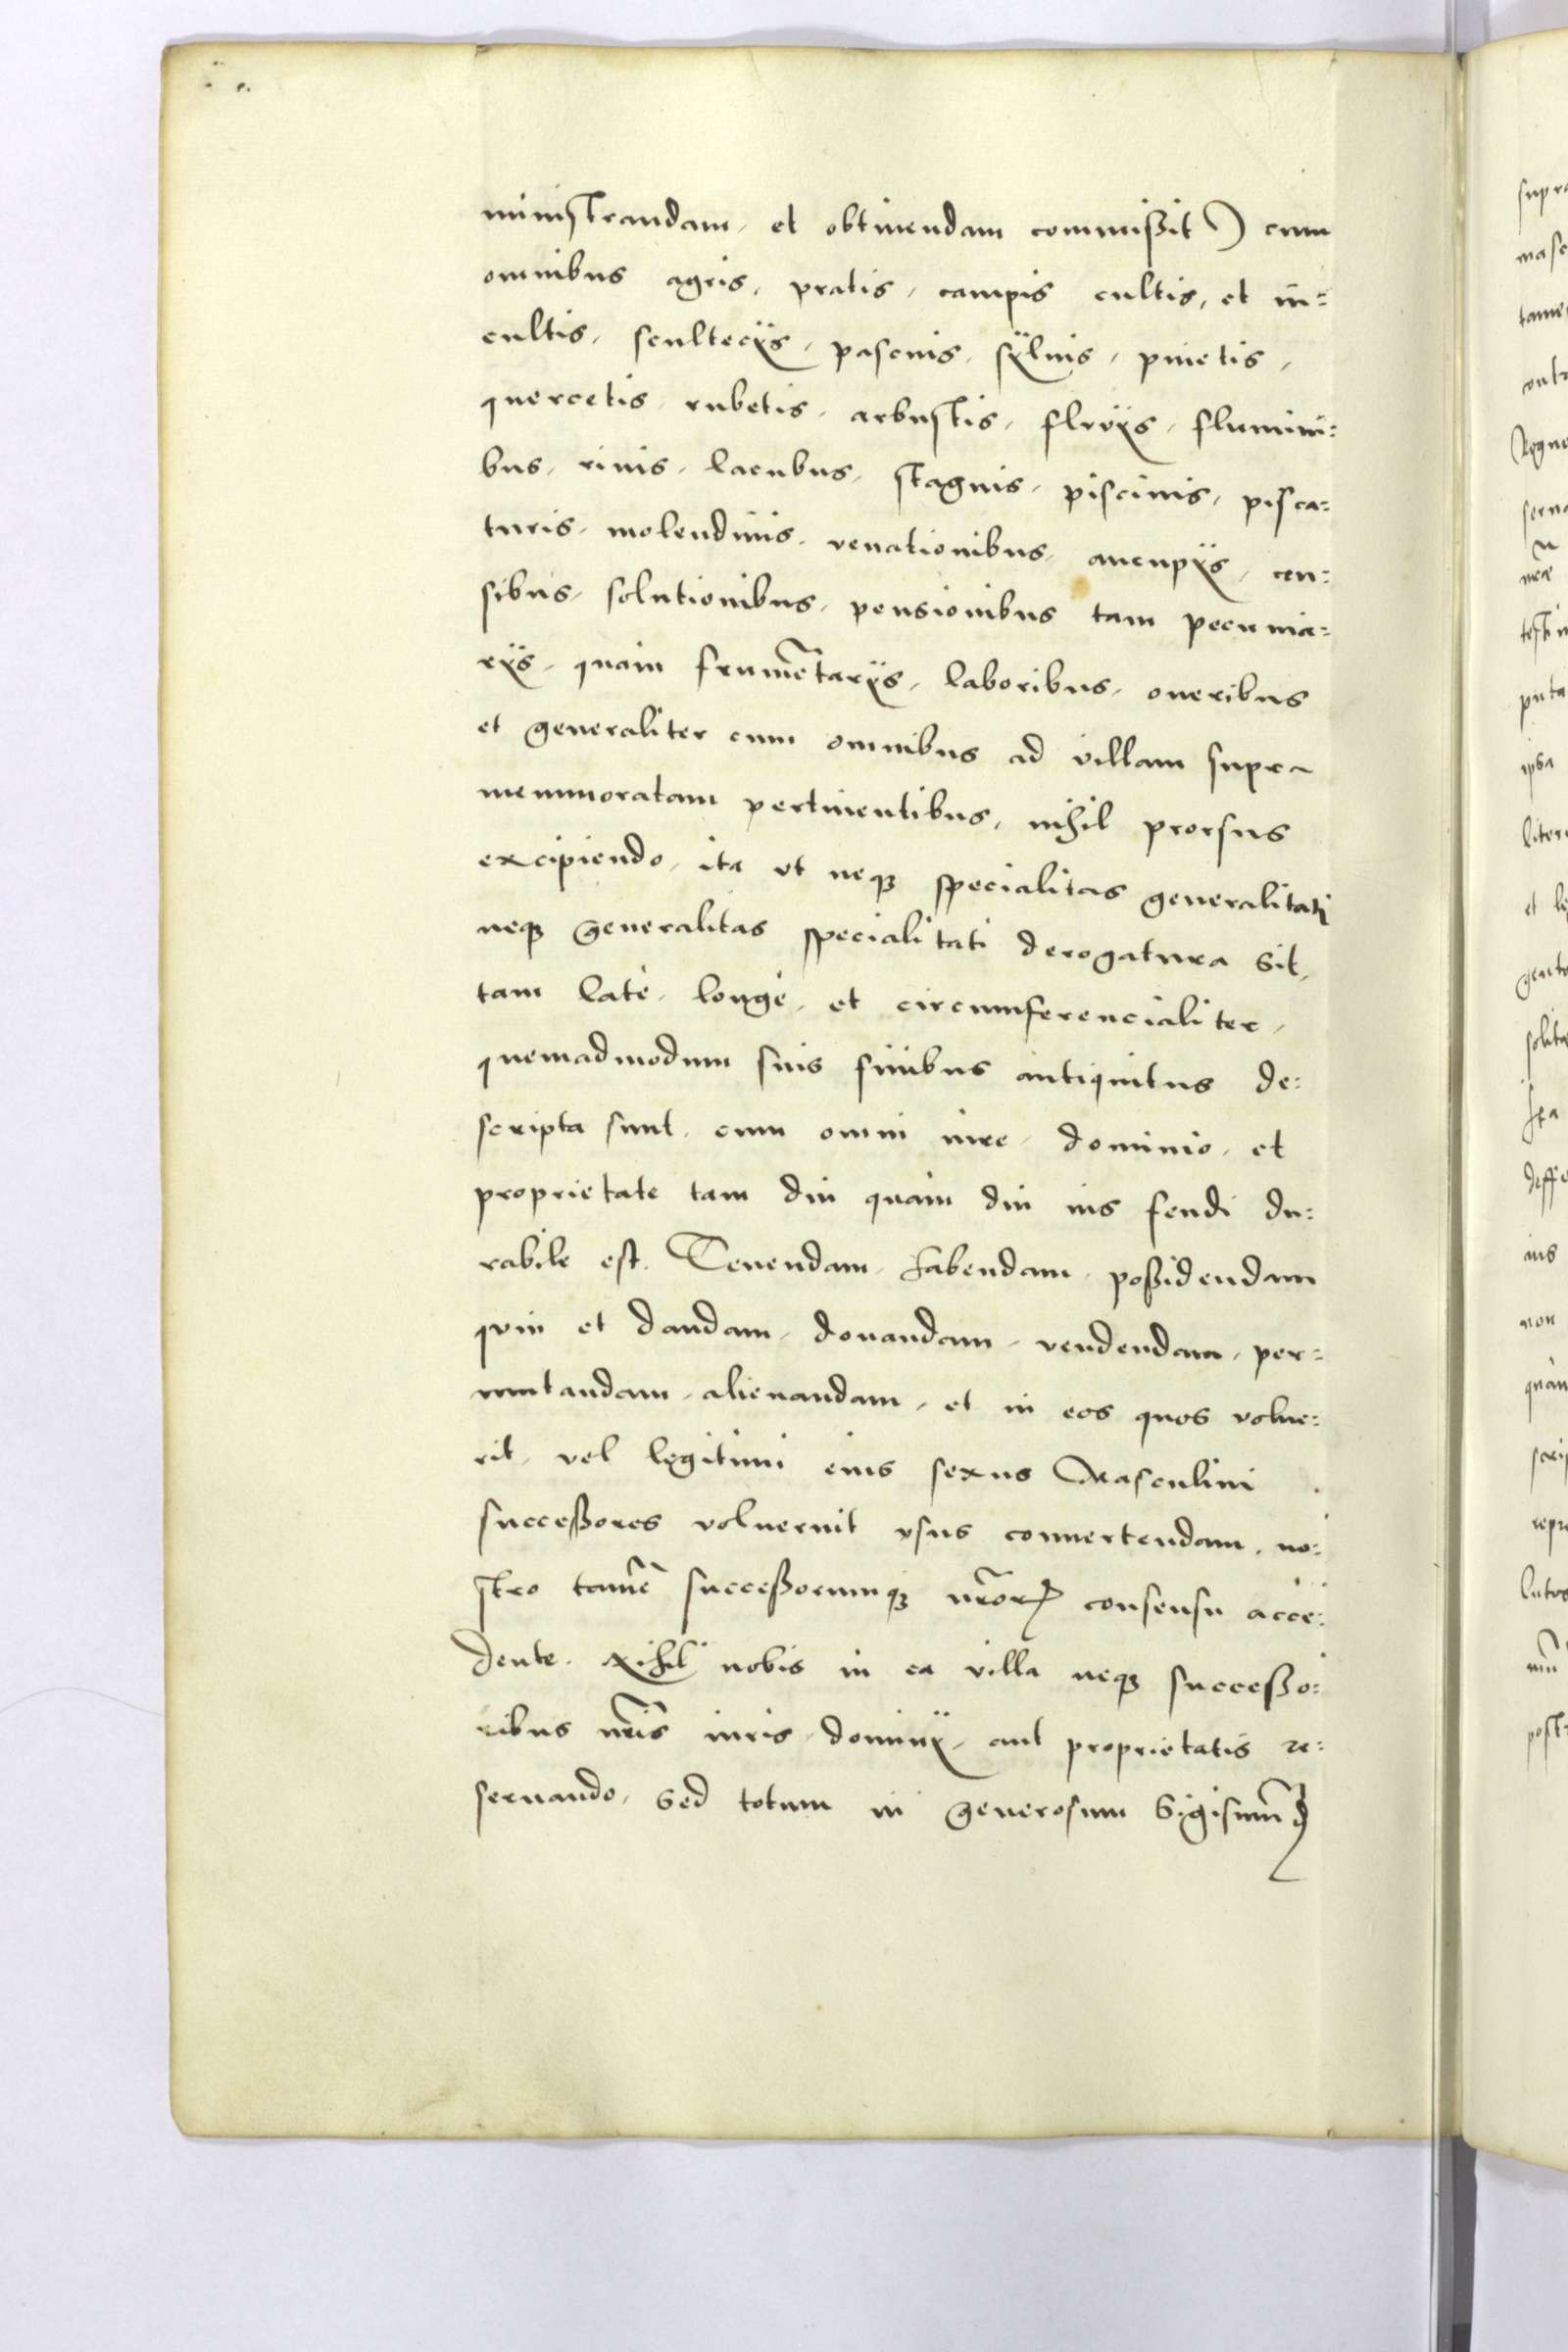 ministrandam, et obtinendam commißit) cum
omnibus agris, pratis, campis cultis, et in=
cultis, scultecÿs, pascuis, sÿluis, pinetis,
quercetis, rubetis, arbustis, fluvÿs, flumini=
bus, riuis, lacubus, stagnis, piscinis, pisca=
turis, molendinis, venationibus, aucupÿs, cen=
sibus, solutionibus, pensionibus tam pecunia=
rÿs, quam frumẽtarÿs, laboribus, oneribus
et generaliter cum omnibus ad villam supra
memmoratam pertinentibus, nihil prorsus
excipiendo, ita vt neqȝ specialitas generalitati
neqȝ generalitas specialitati derogatura sit,
tam latè, longè, et circumferencialiter,
quemadmodum suis finibus antiquitus de=
scripta sunt, cum omni iure, dominio, et
proprietate tam diu quàm diu ius feudi du=
rabile est. Tenendam, habendam, poßidendam
quin et dandam, donandam, vendendam, per=
mutandam, alienandam, et in eos quos volue=
rit, vel legitimi eius sexus Masculini
succeßores voluerint vsus conuertendam, no=
stro tamẽ succeßorumqȝ nr̃orꝝ consensu acce=
dente. Nihil nobis in ea villa neqȝ succeßo=
ribus nr̃is iuris, dominÿ, aut proprietatis re=
seruando, Sed totum in generosum Sigismũd